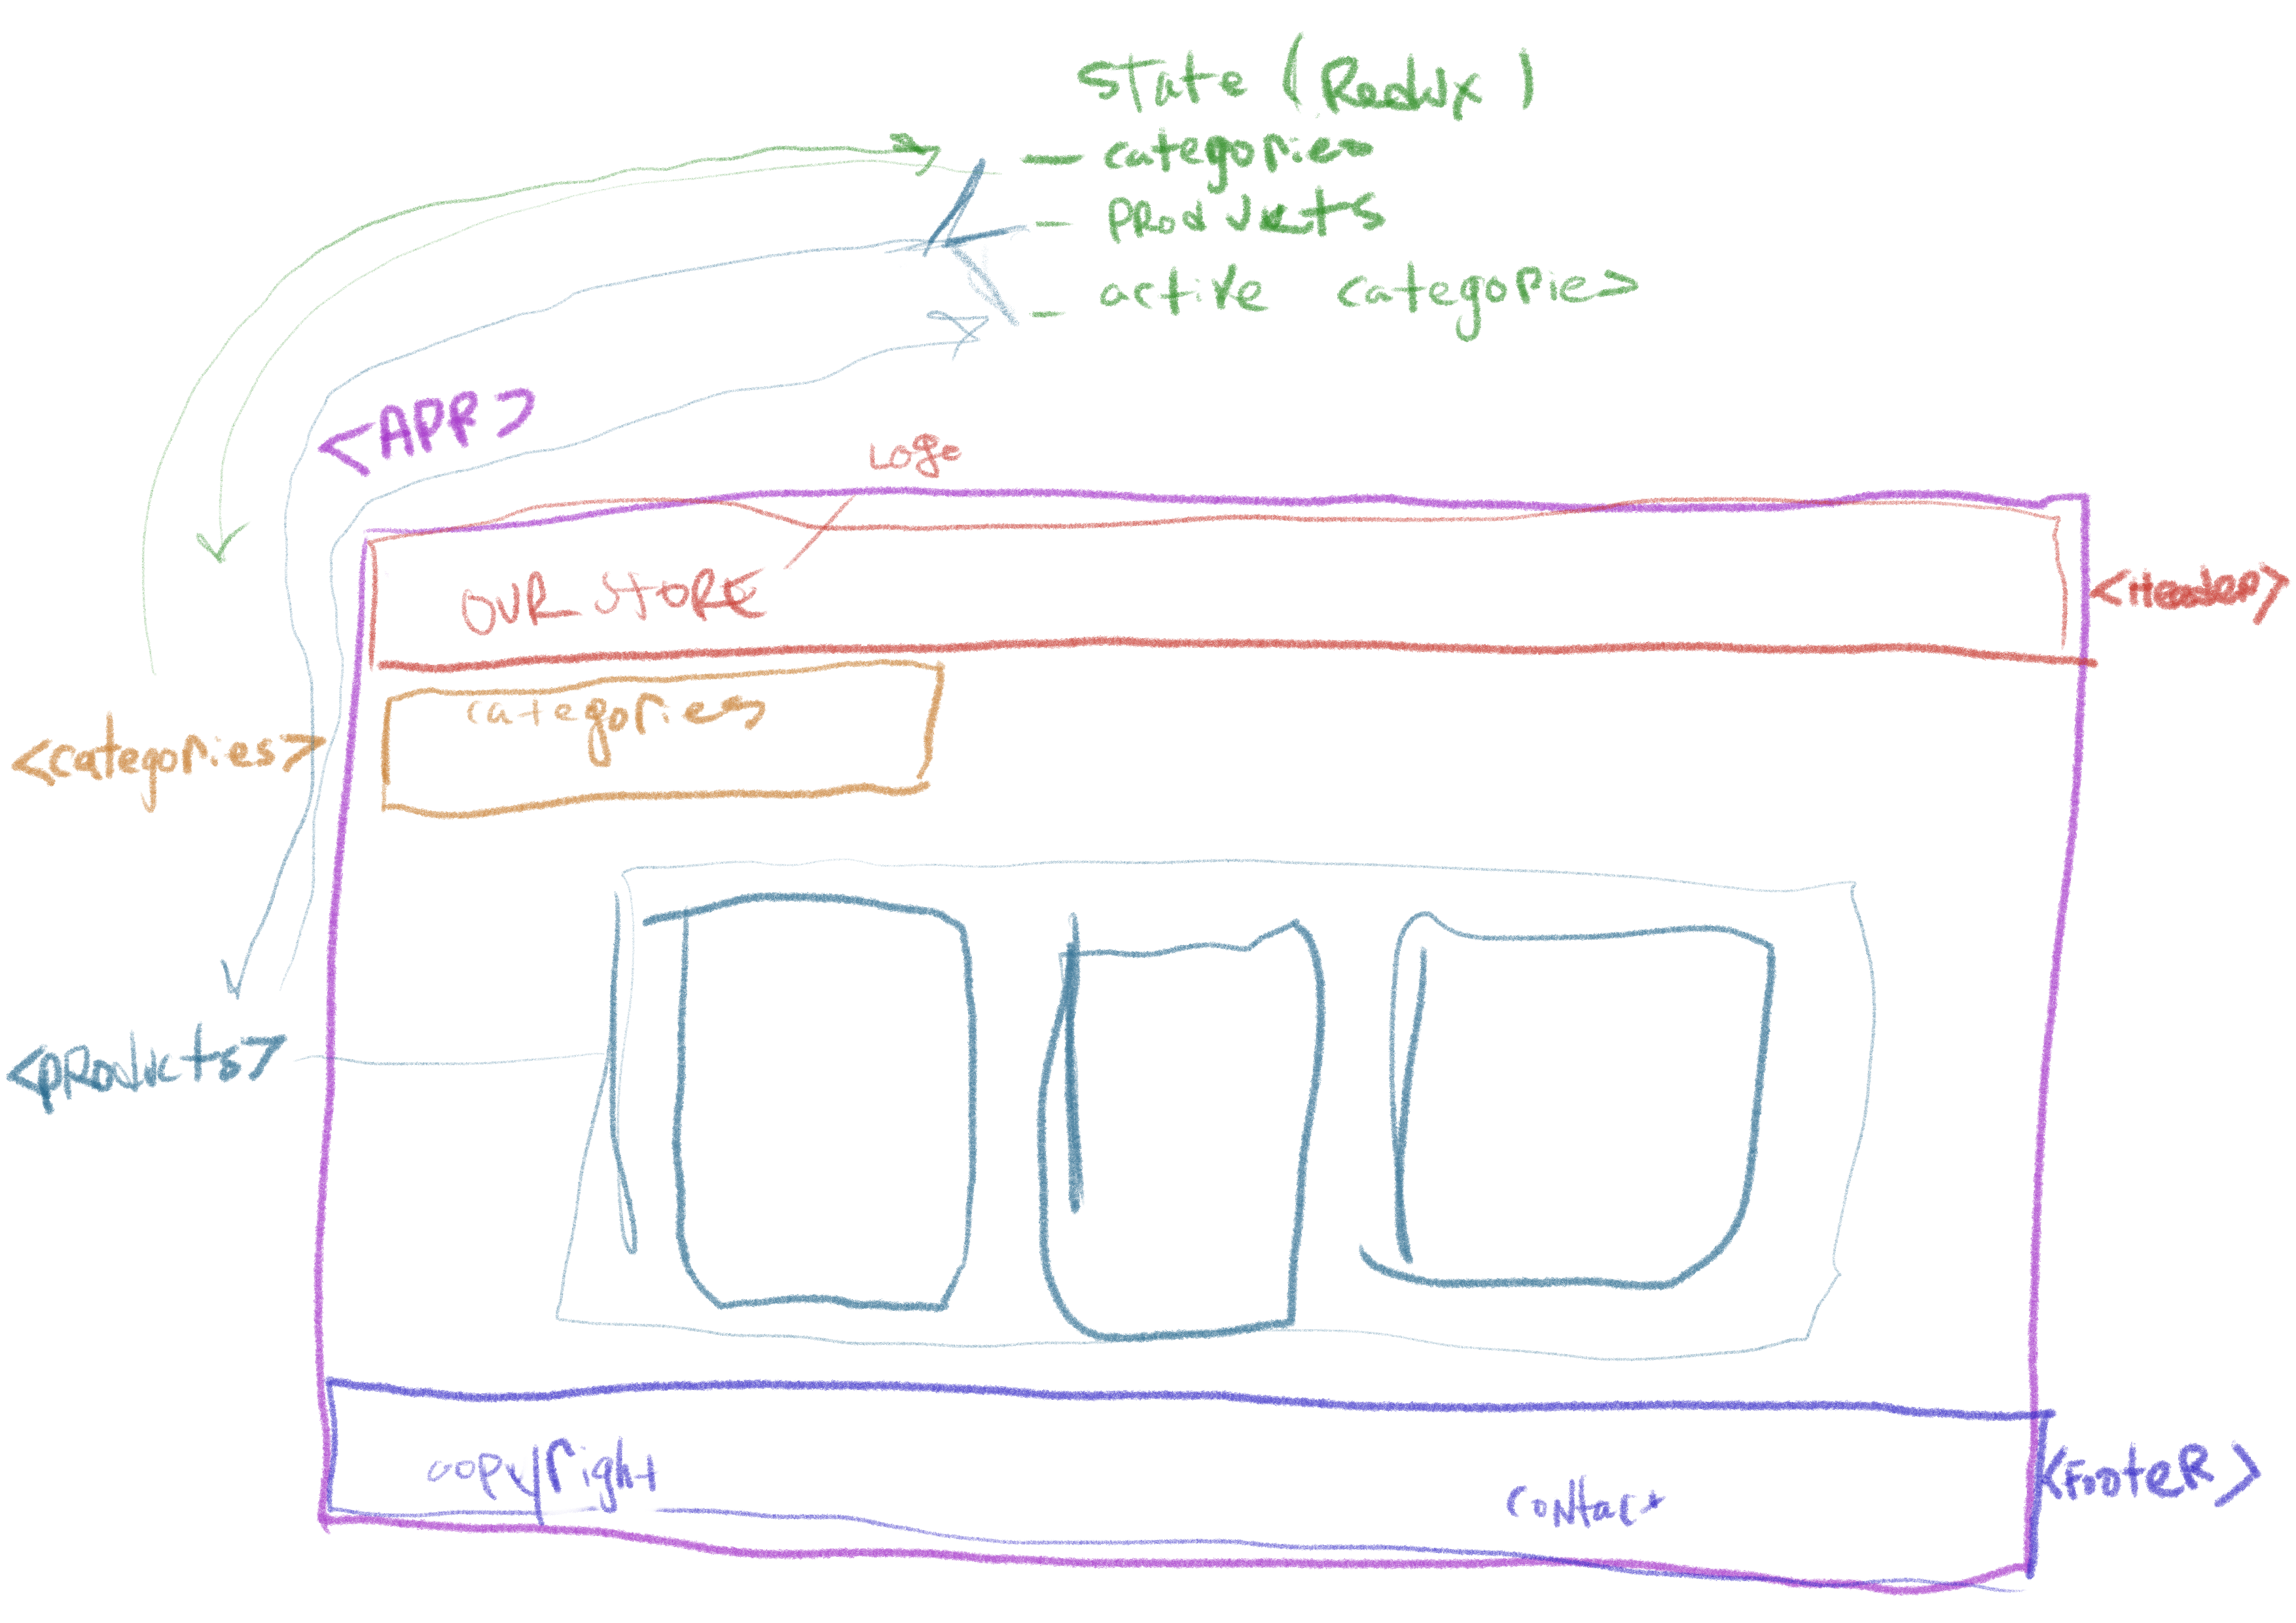 State (Redux)
- categories
- Products
- active categories
<APP>
Logo
OUR STORE
<Header>
categories
<categories>
<Products>
copyright
contact
<FooteR>